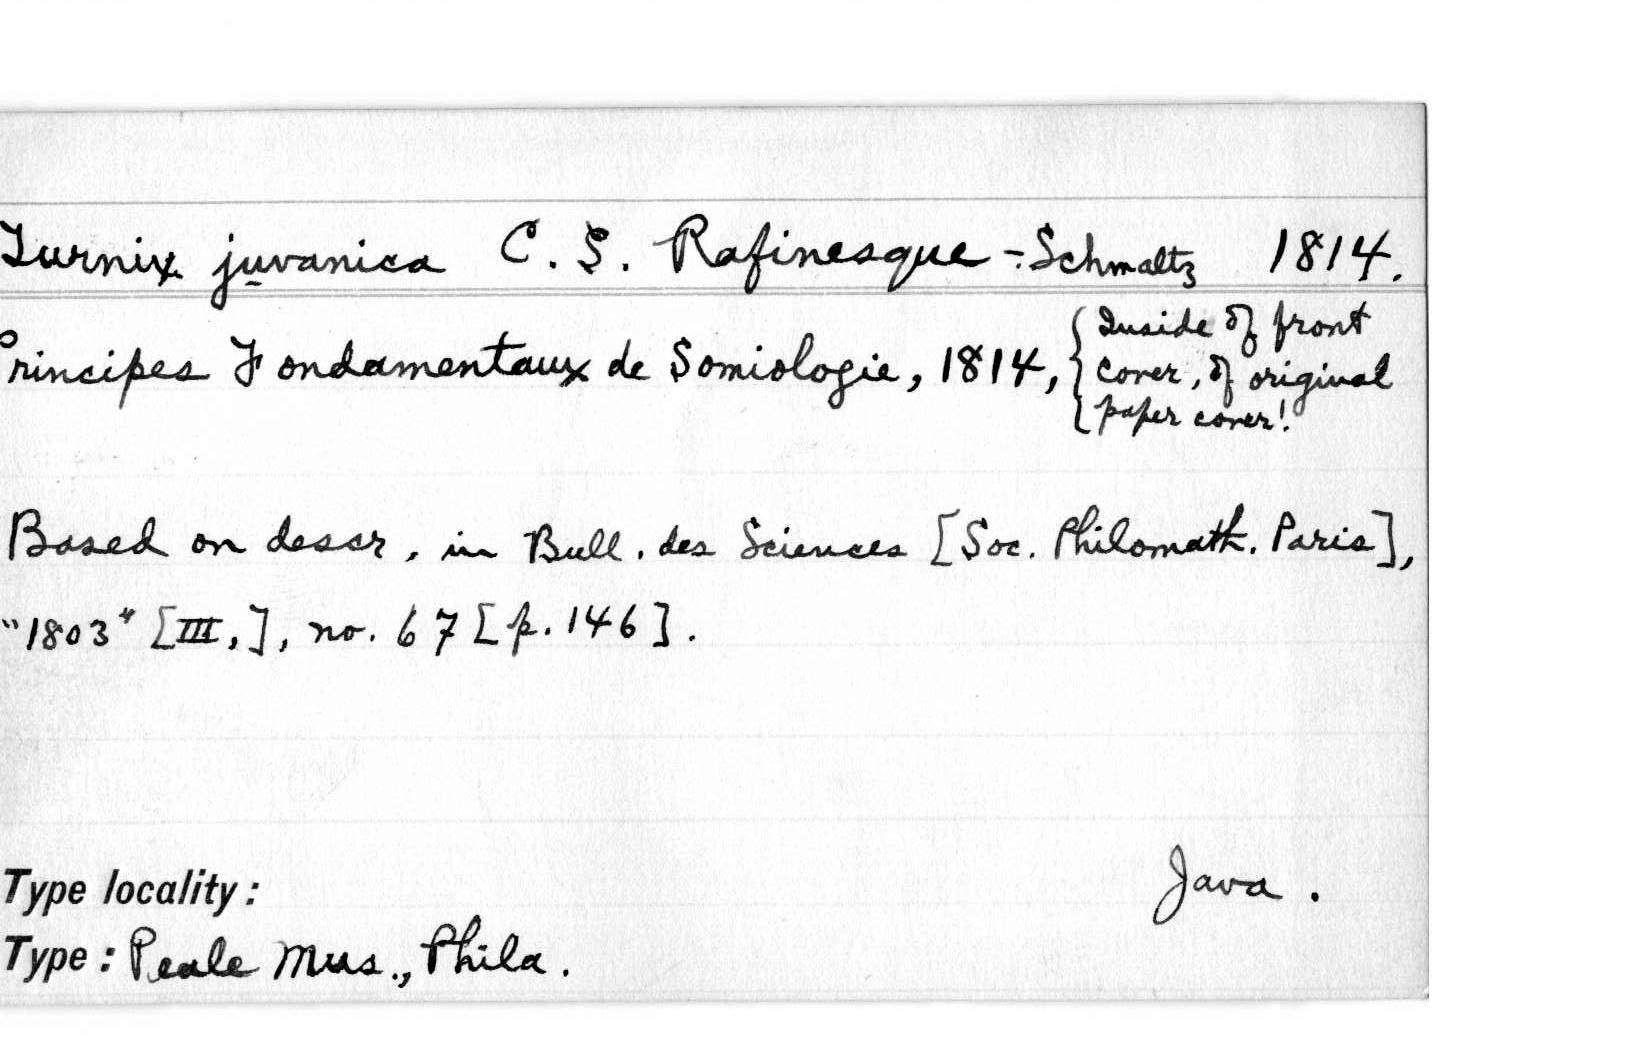 Turnix juvanica C. S. Rafinesque-Schmaltz 1814.
Principes Fondamentaux de Somiologie, 1814, { Inside of front
cover, of original
paper cover!
Based on descr. in Bull. des Sciences [Soc. Philomath. Paris],
"1803" [III,], no. 67 [p. 146].
Type locality: Java.
Type: Peale Mus., Phila.